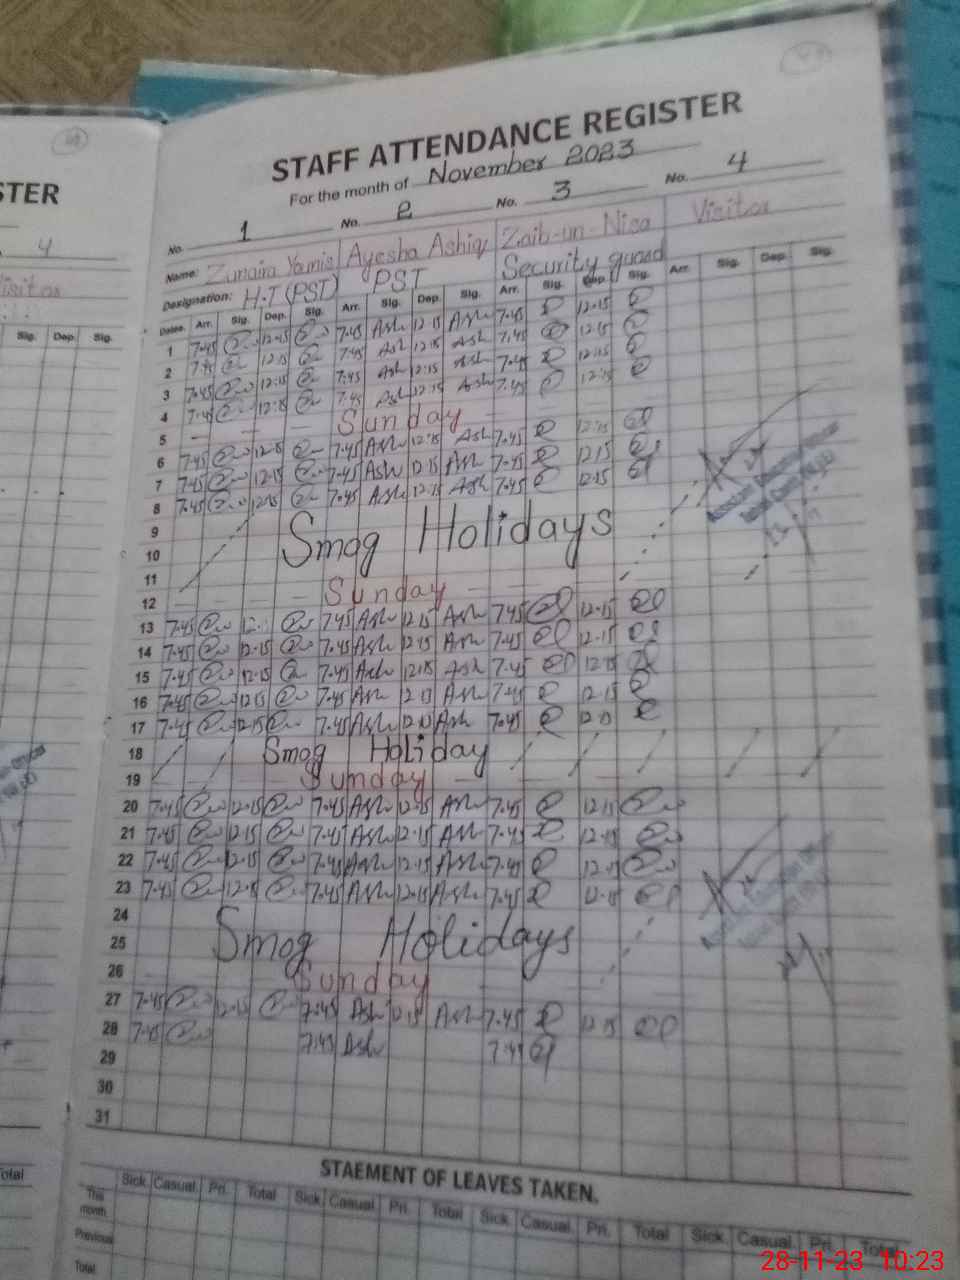 STAFF ATTENDANCE REGISTER
For the month of November 2023
No. 1 No. 2 No. 3 No. 4
Name: Zunaira Yamis Ayesha Ashiq Zaib-un-Nisa Visitor
Designation: H.T (PST) PST Security guard
Dates Arr. Sig. Dep. Sig. Arr. Sig. Dep. Sig. Arr. Sig. Dep. Sig. Arr. Sig. Dep. Sig.
1 7.45 12.15 7.45 Ash 12.15 Ash 7.45 12.15
2 7.45 12.15 7.45 Ash 12.15 Ash 7.45 12.15
3 7.45 12.15 7.45 Ash 12.15 Ash 7.45 12.15
4 7.45 12.15 7.45 Ash 12.15 Ash 7.45 12.15
5 Sunday
6 7.45 12.15 7.45 Ash 12.15 Ash 7.45 12.15
7 7.45 12.15 7.45 Ash 12.15 Ash 7.45 12.15
8 7.45 12.15 7.45 Ash 12.15 Ash 7.45 12.15
9
10 Smog Holidays
11
12 Sunday
13 7.45 7.45 Ash 12.15 Ash 7.45 12.15
14 7.45 12.15 7.45 Ash 12.15 Ash 7.45 12.15
15 7.45 12.15 7.45 Ash 12.15 Ash 7.45 12.15
16 7.45 12.15 7.45 Ash 12.15 Ash 7.45 12.15
17 7.45 12.15 7.45 Ash 12.15 Ash 7.45 12.15
18 Smog Holiday
19 Sunday
20 7.45 12.15 7.45 Ash 12.15 Ash 7.45 12.15
21 7.45 12.15 7.45 Ash 12.15 Ash 7.45 12.15
22 7.45 12.15 7.45 Ash 12.15 Ash 7.45 12.15
23 7.45 12.15 7.45 Ash 12.15 Ash 7.45 12.15
24
25 Smog Holidays
26 Sunday
27 7.45 12.15 7.45 Ash 12.15 Ash 7.45 12.15
28 7.45 7.45 Ash 7.45
29
30
31
STAEMENT OF LEAVES TAKEN.
Sick Casual Pri. Total Sick Casual Pri. Total Sick Casual Pri. Total Sick Casual Pri. Total
This month
Previous
Total
STER
4
Visitor
Sig. Dep. Sig.
Total
28-11-23 10:23